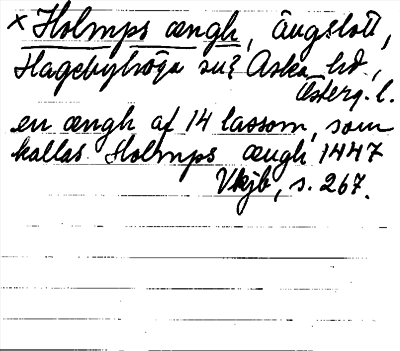 × Holmps ængh, ängslott,
Hagebyhöga sn? Aska hd.,
Österg. l.
en ængh af 14 lassom, som
kallas Holmps ængh 1447
Vkjb, s. 267.